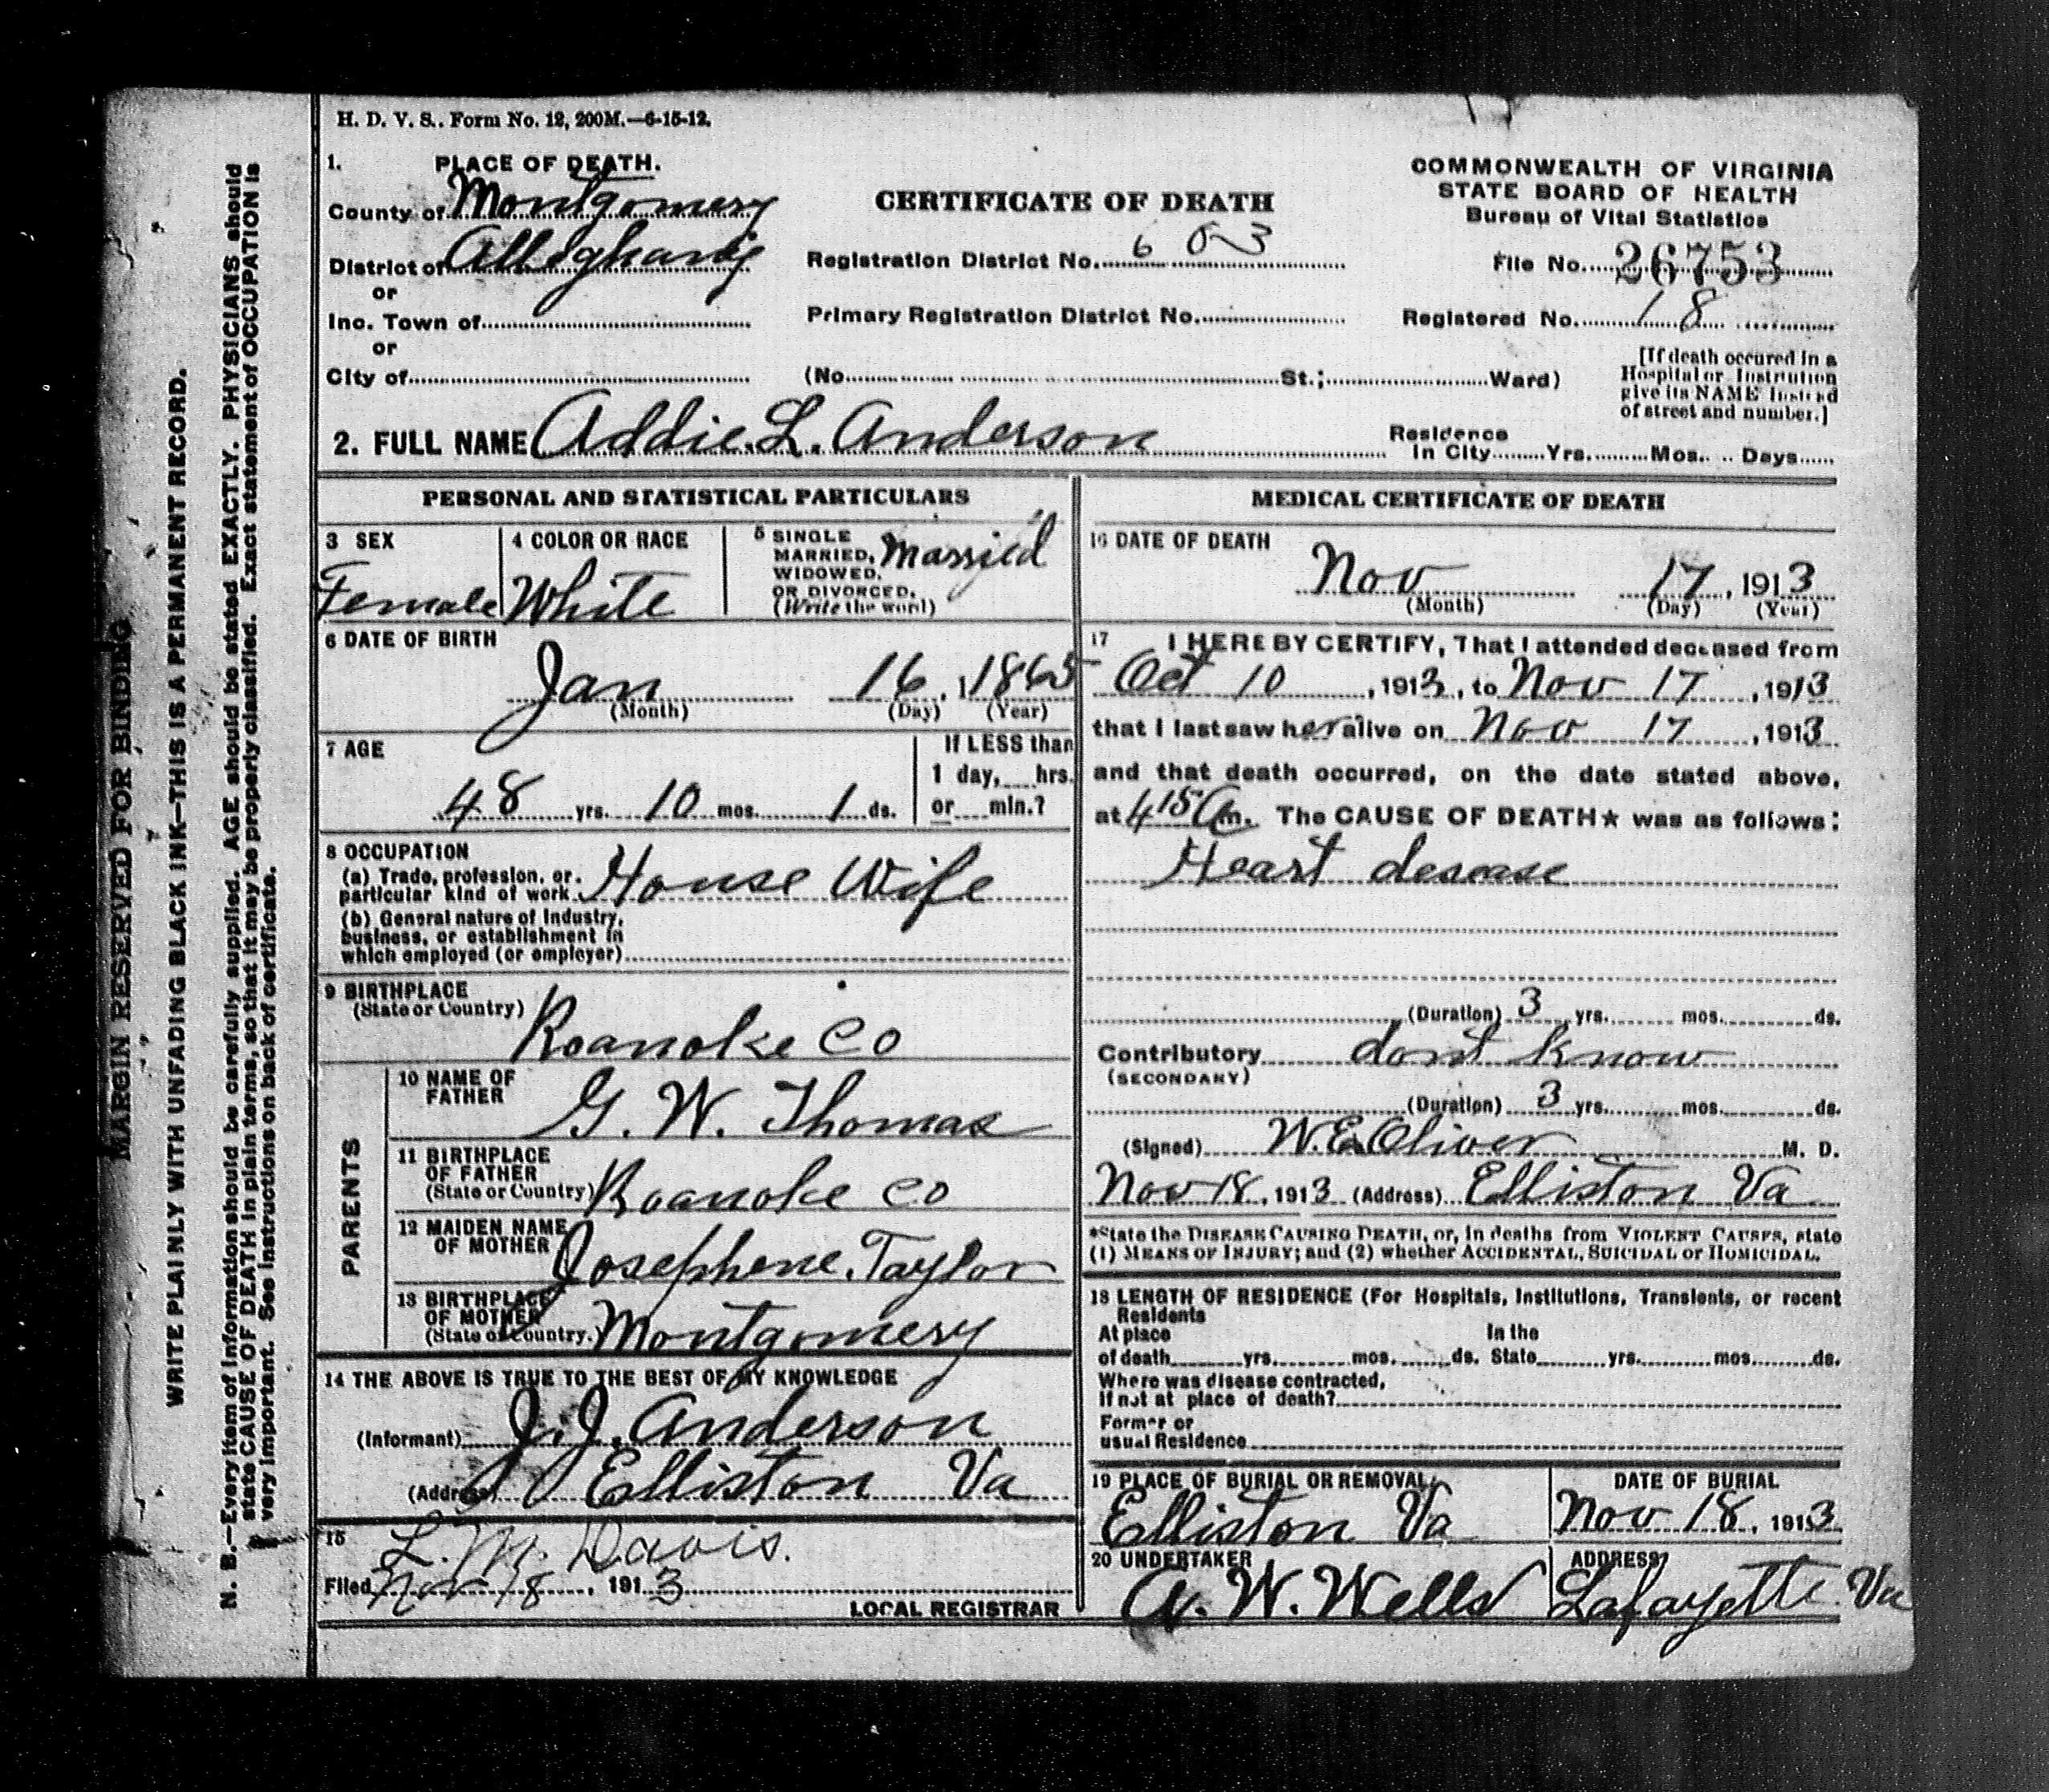 H. D. V. S.. Form No. 12, 200M.—6-15-12.
1. PLACE OF DEATH.
County of Montgomery
District of Alleghany
or
Inc. Town of
or
City of
CERTIFICATE OF DEATH
Registration District No. 603
Primary Registration District No.
(No. St.; Ward)
COMMONWEALTH OF VIRGINIA
STATE BOARD OF HEALTH
Bureau of Vital Statistics
File No. 26753
Registered No. 18
[If death occured in a
Hospital or Institution
give its NAME instead
of street and number.]
2. FULL NAME Addie. L. Anderson
Residence
In City Yrs. Mos. Days
PERSONAL AND STATISTICAL PARTICULARS
3 SEX
Female
4 COLOR OR RACE
White
5 SINGLE
MARRIED,
WIDOWED,
OR DIVORCED,
(Write the word)
Married
6 DATE OF BIRTH
Jan 16, 11865
(Month) (Day) (Year)
7 AGE
48 yrs. 10 mos. 1 ds.
If LESS than
1 day, hrs.
or min.?
8 OCCUPATION
(a) Trade, profession, or
particular kind of work House Wife
(b) General nature of Industry,
business, or establishment in
which employed (or employer)
9 BIRTHPLACE
(State or Country)
Roanoke Co
PARENTS
10 NAME OF
FATHER
G. W. Thomas
11 BIRTHPLACE
OF FATHER
(State or Country) Roanoke Co
12 MAIDEN NAME
OF MOTHER
Josephene. Taylor
13 BIRTHPLACE
OF MOTHER
(State or Country.) Montgomery
14 THE ABOVE IS TRUE TO THE BEST OF MY KNOWLEDGE
(Informant) J. J. Anderson
(Address) Elliston Va
15
L. M. Davis.
Filed Nov 18, 1913
LOCAL REGISTRAR
MEDICAL CERTIFICATE OF DEATH
16 DATE OF DEATH
Nov 17, 1913
(Month) (Day) (Year)
17 I HEREBY CERTIFY, That I attended deceased from
Oct 10, 1913, to Nov 17, 1913
that I last saw her alive on Nov 17, 1913
and that death occurred, on the date stated above,
at 4 15 Am. The CAUSE OF DEATH★ was as follows:
Heart desease
(Duration) 3 yrs. mos. ds.
Contributory dont know
(SECONDARY)
(Duration) 3 yrs. mos. ds.
(Signed) W. E. Oliver M. D.
Nov 18, 1913 (Address) Elliston Va
*State the DISEASE CAUSING DEATH, or, in deaths from VIOLENT CAUSES, state
(1) MEANS OF INJURY; and (2) whether ACCIDENTAL, SUICIDAL or HOMICIDAL.
18 LENGTH OF RESIDENCE (For Hospitals, Institutions, Transients, or recent
Residents
At place In the
of death yrs. mos. ds. State yrs. mos. ds.
Where was disease contracted,
If not at place of death?
Former or
usual Residence
19 PLACE OF BURIAL OR REMOVAL
Elliston Va
DATE OF BURIAL
Nov 18, 1913
20 UNDERTAKER
A. W. Wells
ADDRESS
Lafayette Va
MARGIN RESERVED FOR BINDING
WRITE PLAINLY WITH UNFADING BLACK INK—THIS IS A PERMANENT RECORD.
N. B.—Every item of information should be carefully supplied. AGE should be stated EXACTLY. PHYSICIANS should
state CAUSE OF DEATH in plain terms, so that it may be properly classified. Exact statement of OCCUPATION is
very important. See instructions on back of certificate.